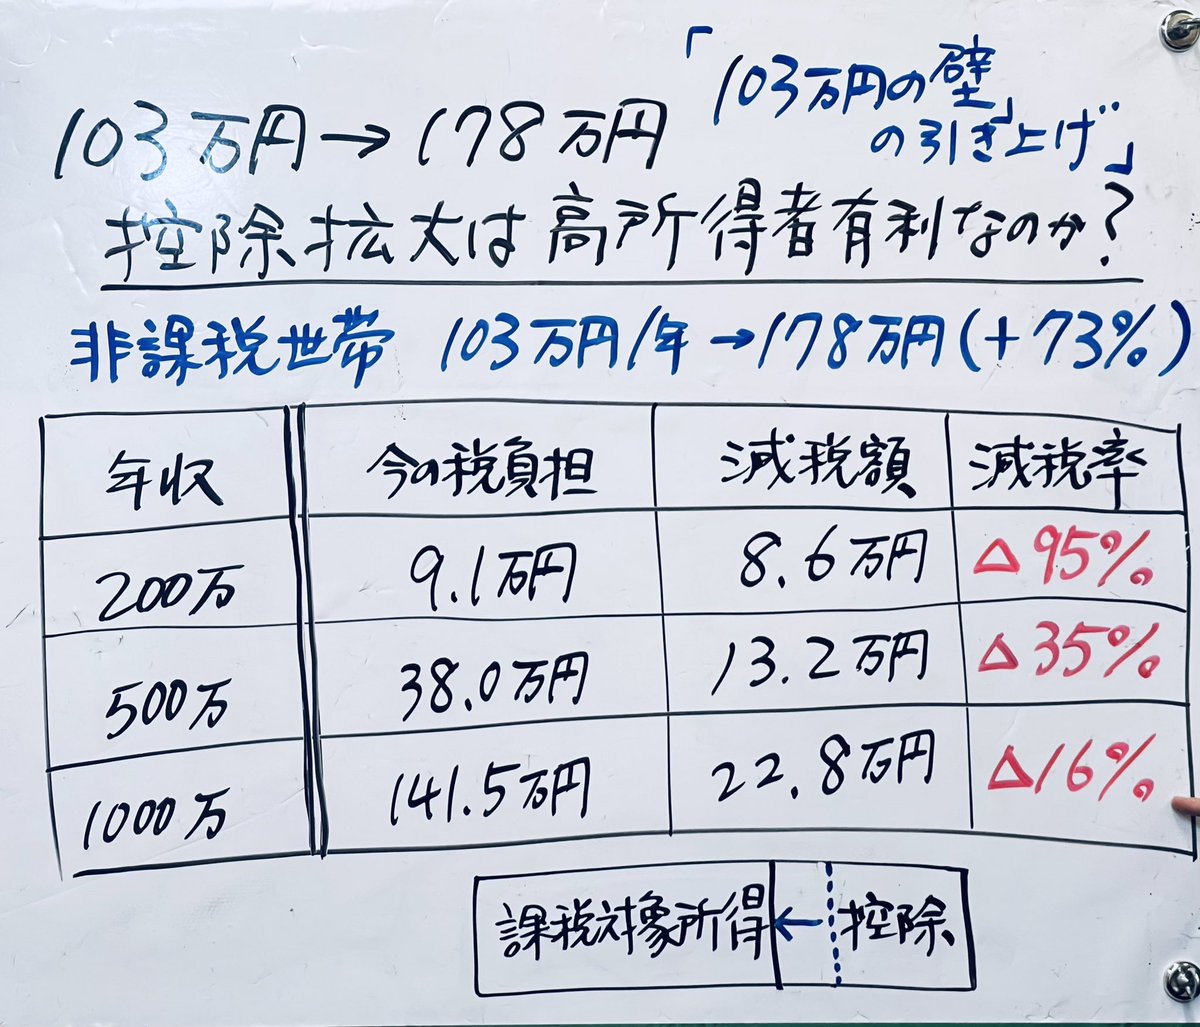 「103万円の壁」
の引き上げ」
103万円→178万円
控除拡大は高所得者有利なのか?
非課税世帯 103万円/年→178万円(+73%)
年収 今の税負担 減税額 減税率
200万 9.1万円 8.6万円 △95%
500万 38.0万円 13.2万円 △35%
1000万 141.5万円 22.8万円 △16%
課税対象所得 ← 控除